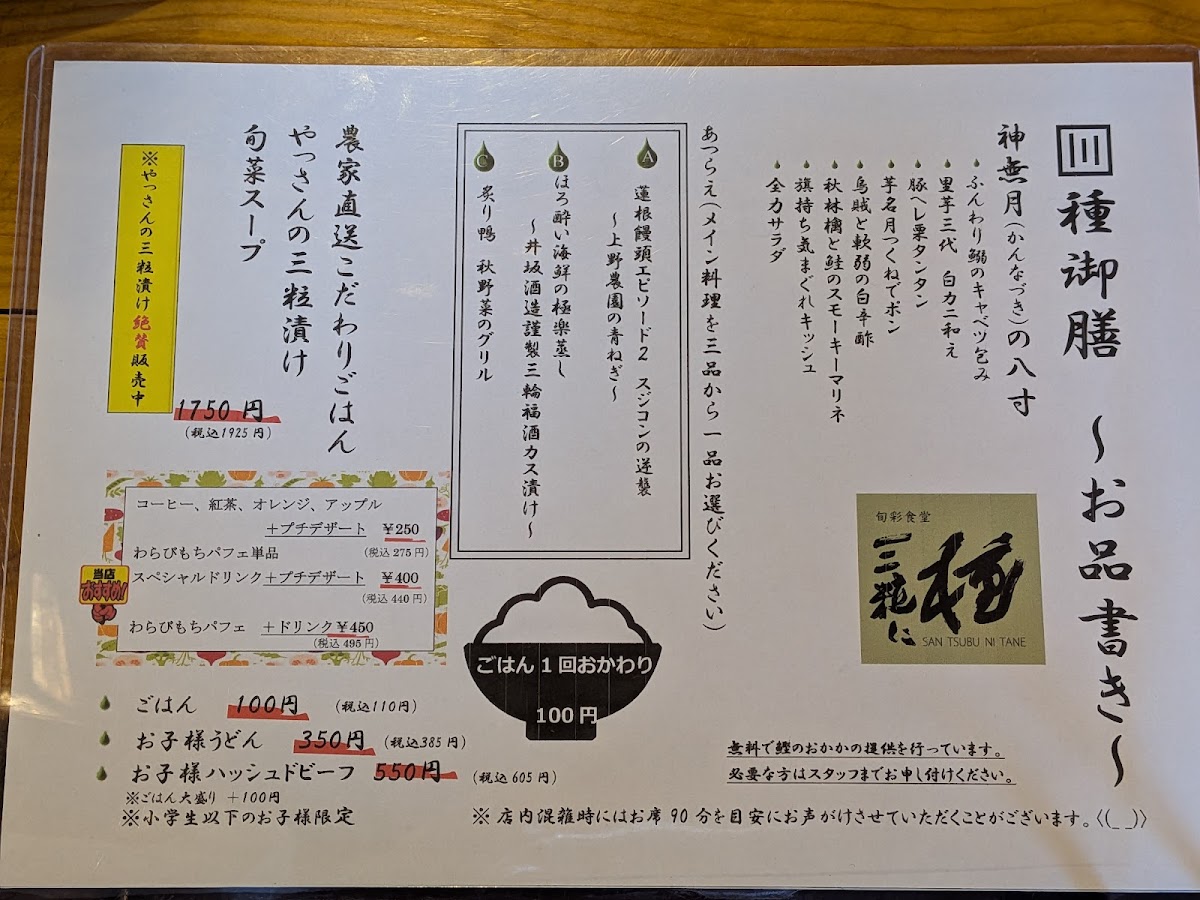 種御膳 ～お品書き～
神無月(かんなづき)の八寸
ふんわり鰯のキャベツ包み
里芋三代 白カニ和え
豚ヘレ栗タンタン
芋名月つくねでポン
烏賊と軟弱の白辛酢
秋林檎と鮭のスモーキーマリネ
旗持ち気まぐれキッシュ
全力サラダ
旬彩食堂
三粒に
種
SAN TSUBU NI TANE
あつらえ(メイン料理を三品から一品お選びください)
A 蓮根饅頭エピソード2 スジコンの逆襲
～上野農園の青ねぎ～
B ほろ酔い海鮮の極楽蒸し
～井坂酒造謹製三輪福酒カス漬け～
C 炙り鴨 秋野菜のグリル
農家直送こだわりごはん
やっさんの三粒漬け
旬菜スープ
※やっさんの三粒漬け絶賛販売中
1750円
(税込1925円)
コーヒー、紅茶、オレンジ、アップル
＋プチデザート ¥250
わらびもちパフェ単品 (税込 275円)
当店
おすすめ!
スペシャルドリンク＋プチデザート ¥400
(税込 440円)
わらびもちパフェ ＋ドリンク¥450
(税込 495円)
ごはん1回おかわり
100円
ごはん 100円 (税込110円)
お子様うどん 350円 (税込385円)
お子様ハッシュドビーフ 550円 (税込 605円)
※ごはん大盛り ＋100円
※小学生以下のお子様限定
無料で鰹のおかかの提供を行っています。
必要な方はスタッフまでお申し付けください。
※店内混雑時にはお席90分を目安にお声がけさせていただくことがございます。<(_ _)>